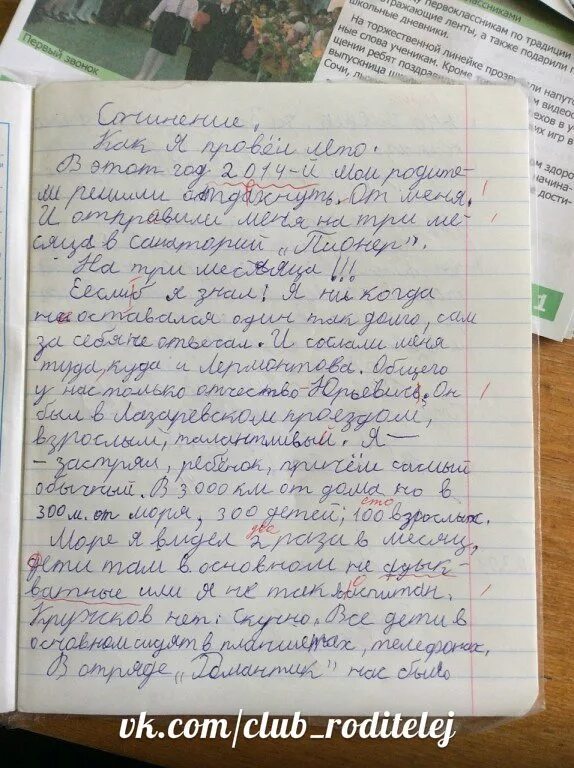 первоклассникам по традиции
отражающие ленты, а также подарили
школьные дневники.
На торжественной линейке прозвучали напут
ные слова ученикам. Кроме
щении ребят поздравила
выпускница
Сочи,
Первый звонок
Сочинение.
Как я провёл лето.
В этот год 2014-й мои родите-
ли решили отдахнуть. От меня.
И отправили меня на три ме-
сяца в санаторий „Пионер".
На три месяца!!!
Еслиб я знал! Я ни когда
не оставался один так долго, сам
за себя не отвечал. И сослали меня
туда, куда и Лермонтова. Общего
у нас только отчество-Юрьевич. Он
был в Лазаревском проездом,
взрослым, талантливый. Я —
- застрял, ребёнок, причём самый
обычный. В 3000 км от дома но в
300 м. от моря, 300 детей, 100 взрослых.
сто
Море я видел 2 раза в месяц,
два
дети там в основном не адык-
ватные или я не так воспитан.
Кружков нет! Скучно. Все дети в
основном сидят в планшетах, телефонах.
В отряде „Романтик" нас было
1
vk.com/club_roditelej